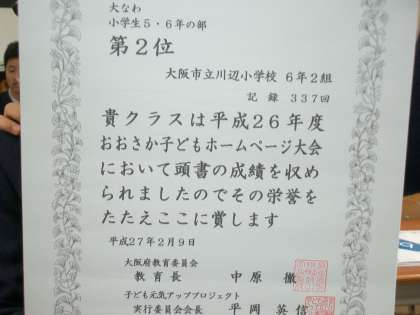 大なわ
小学生5・6年の部
第2位
大阪市立川辺小学校 6年2組
記録 337回
貴クラスは平成26年度
おおさか子どもホームページ大会
において頭書の成績を収め
られましたのでその栄誉を
たたえここに賞します
平成27年2月9日
大阪府教育委員会
教育長 中原 徹
子ども元気アッププロジェクト
実行委員会会長 平岡 英信